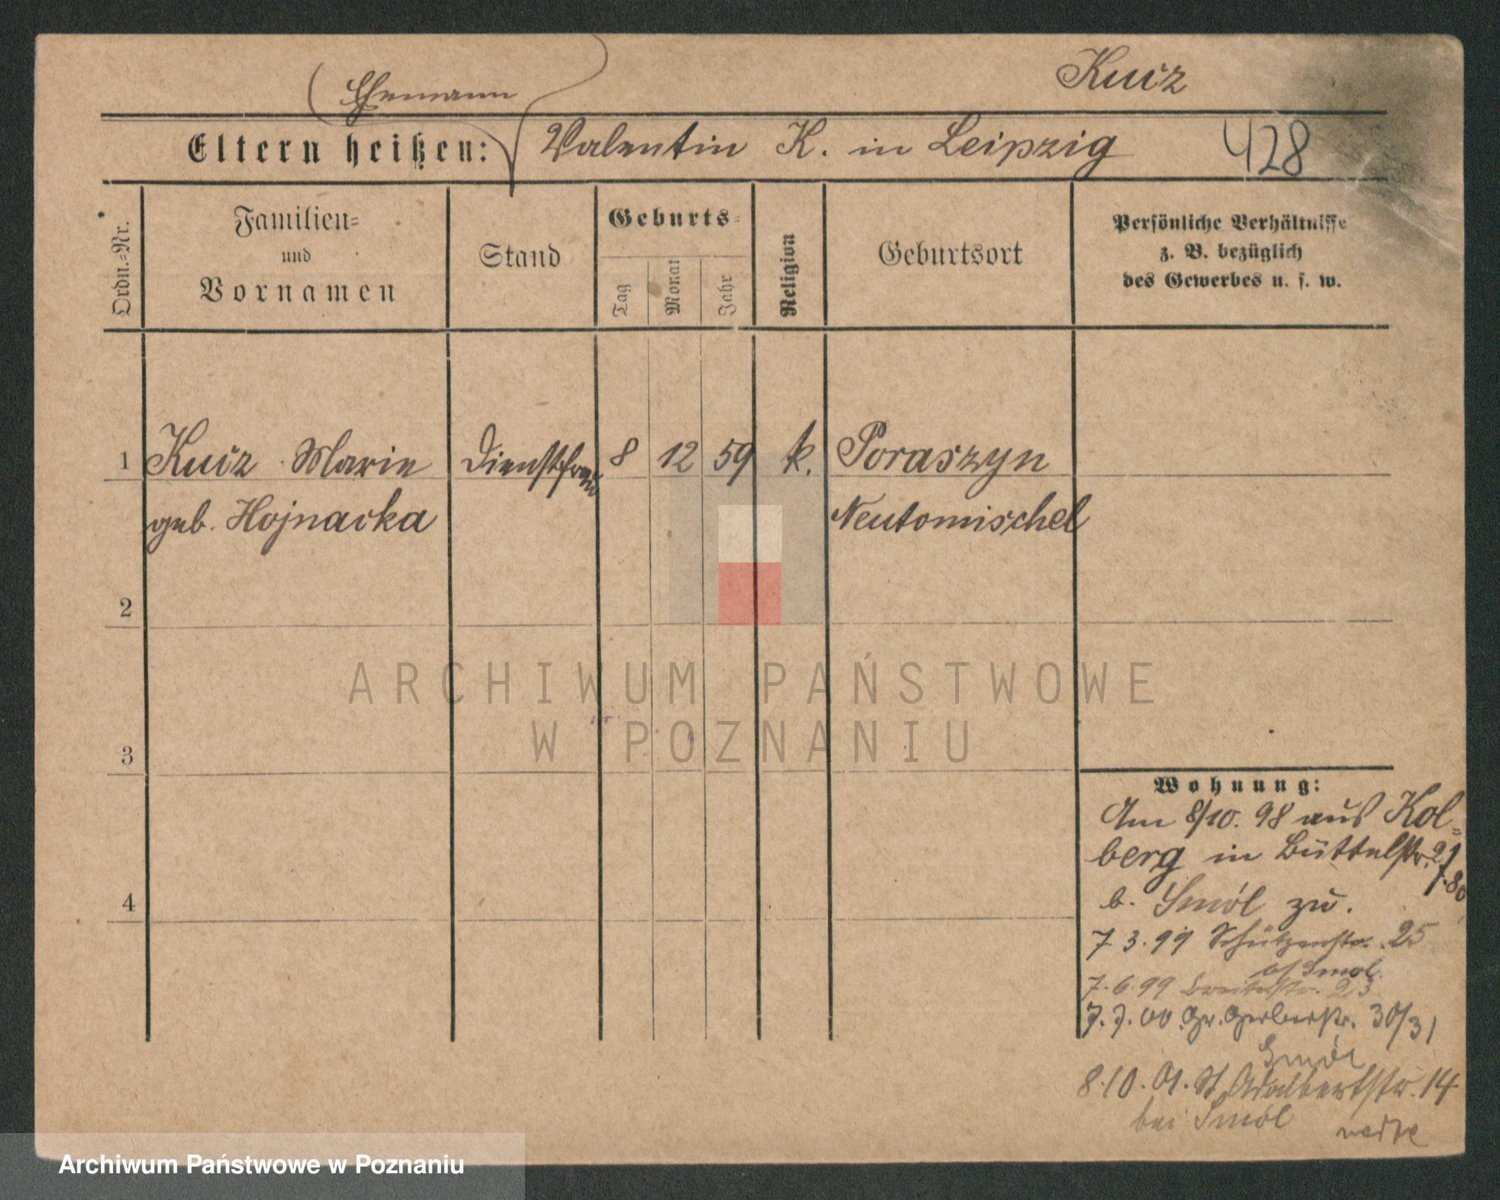 Kucz
(Ehemann
Eltern heißen: Valentin K. in Leipzig 428
Ordn.-Nr.
Familien-
und
Vornamen
Stand
Geburts-
Tag
Monat
Jahr
Religion
Geburtsort
Persönliche Verhältnisse
z. B. bezüglich
des Gewerbes u. s. w.
1 Kucz Marie Dienstfrau 8 12 59 k. Poraszyn
geb. Hojnacka Neutomischel
2
3
4
ARCHIWUM PAŃSTWOWE
W POZNANIU
Wohnung:
Am 8/10. 98 aus Kol-
berg in Büttelstr. 21
b. Smól zu.
7.3.99 Schützenstr. 25
b/ Smol.
7.6.99 Breitestr. 23
7.7.00 Gr. Gerberstr. 30/31
Smól
8.10.01. St. Adalbertstr. 14
bei Smól
Archiwum Państwowe w Poznaniu